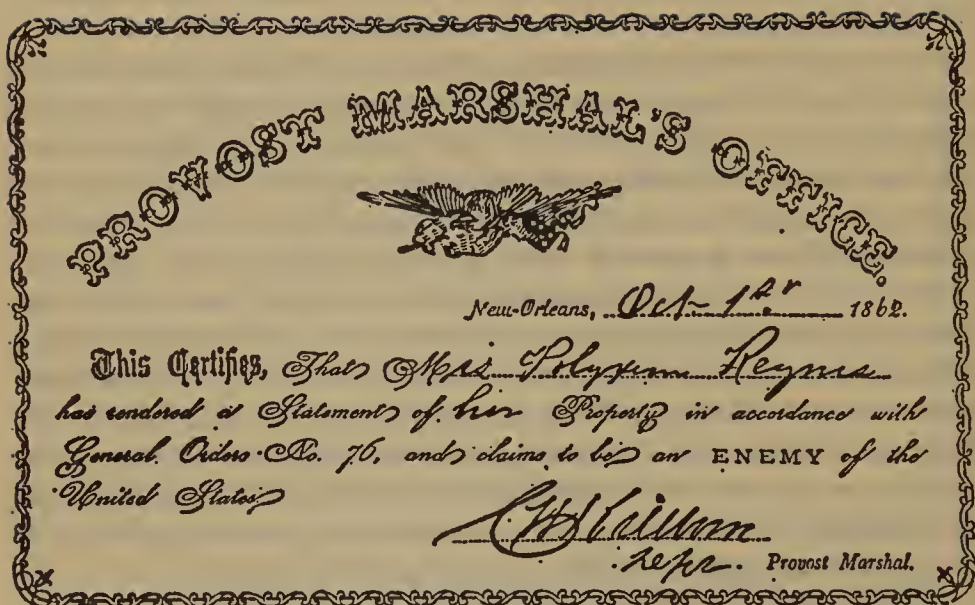 PROVOST MARSHAL'S OFFICE.
New-Orleans, Oct 1st 1862.
This Certifies, That Mrs Polyxene Reynes
has rendered a Statement of her Property in accordance with
General Orders No. 76, and claims to be an ENEMY of the
United States
Provost Marshal.